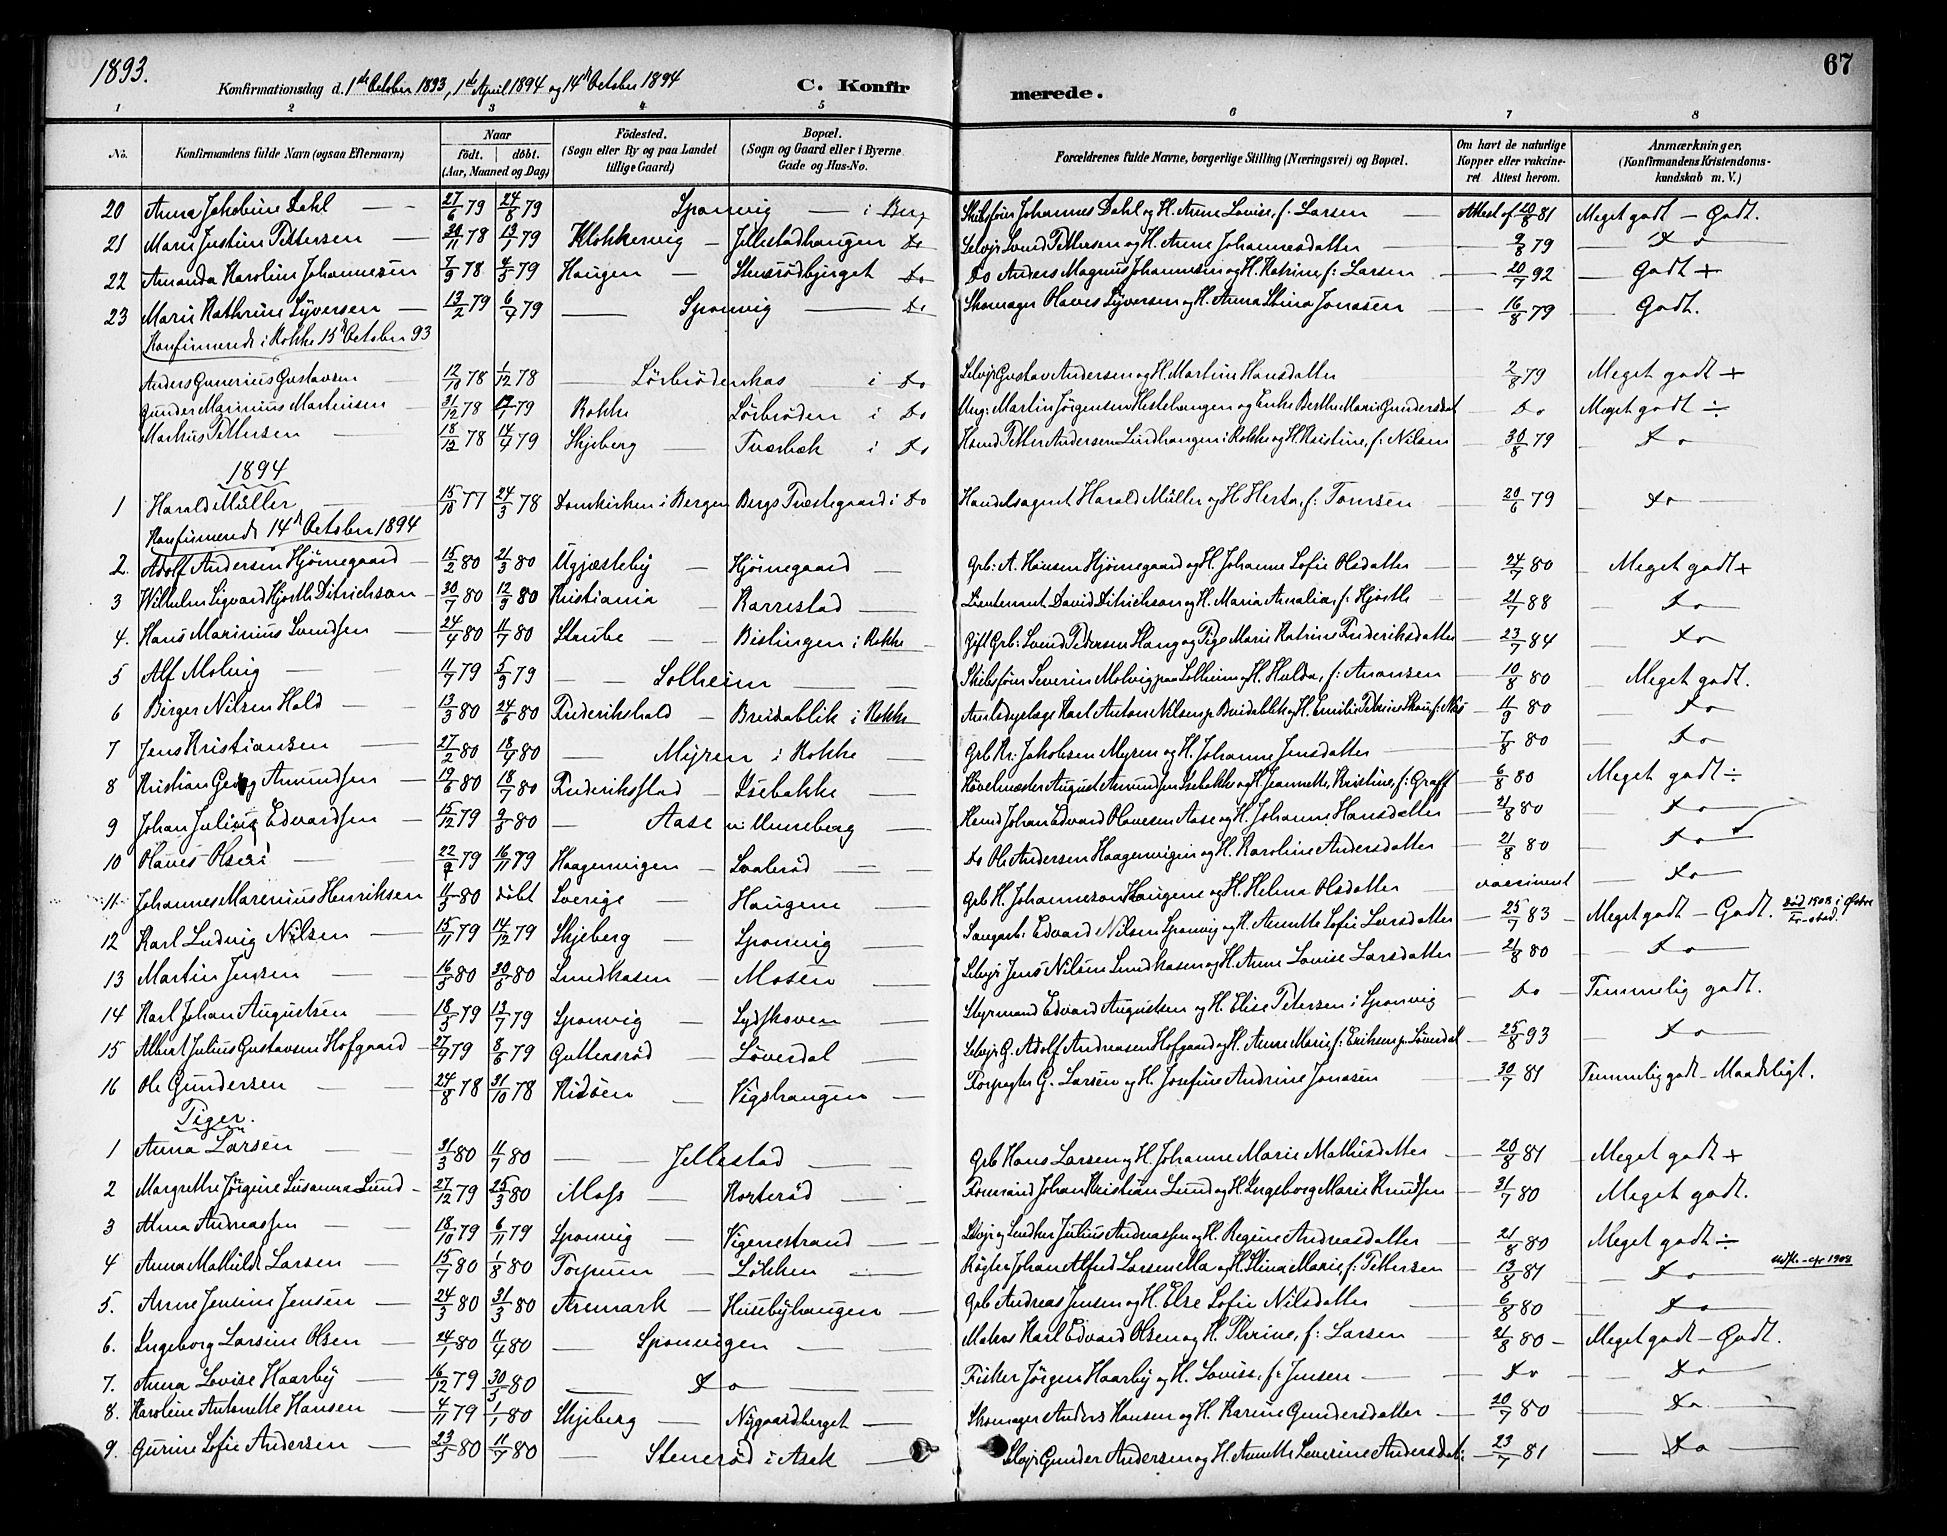 1893.
Konfirmationsdag d. 1ste October 1893, 1ste April 1894 og 14de October 1894
C. Konfirmerede.
67
1 2 3 4 5 6 7 8
No. Konfirmandens fulde Navn (ogsaa Efternavn) Naar født. | døbt. (Aar, Maaned og Dag) Fødested. (Sogn eller By og paa Landet tillige Gaard) Bopæl. (Sogn og Gaard eller i Byerne Gade og Hus-No. Forældrenes fulde Navne, borgerlige Stilling (Næringsvei) og Bopæl. Om havt de naturlige Kopper eller vakcineret Attest herom. Anmærkninger. (Konfirmandens Kristendomskundskab m. V.)
20 Anna Jakobine Dahl 27/6 79 24/8 79 Sponvig i Berg Skibsfører Johannes Dahl og H. Anne Lovise, f. Larsen Attest af 20/8 81 Meget godt - Godt.
21 Marie Justine Pettersen 30/11 78 13/1 79 Klokkervig - Jellestadhaugen Do Selvejr Svend Pettersen og H. Anne Johannesdatter 9/8 79 Do
22 Amanda Karoline Johannesen 7/9 78 4/5 79 Haugen - Stenerødbjerget Do Do Anders Magnus Johannesen og H. Katrine, f: Larsen 20/7 92 Godt +
23 Marie Kathrine Syversen 13/2 79 6/4 79 Sponvig Do Skomager Olaves Syversen og H. Anna Stina Jonasen 16/8 79 Godt.
Konfirmerede i Rokke 15de October 93
Anders Gunerius Gustavsen 12/10 78 1/12 78 Lörbrödenkas i Do Selvejr Gustav Andersen og H. Martine Hansdatter 2/8 79 Meget godt +
Gunder Marinius Martinsen 31/12 78 79 Rokke Lörbröden i Do Ung: Martin Jörgensen Hestehaugen og Enke Berthe Marie Gundersdat Do Meget godt ÷
Markus Pettersen 18/12 78 14/4 79 Skjeberg Tvesbæk i Do Hsmd Petter Andersen Lundhaugen i Rokke og H. Kristine, f: Nilsen 30/8 79 Do
1894
1 Harald Müller 15/10 77 24/3 78 Domkirken i Bergen Bergs Præstegaard i Do Handelsagent Harald Müller og H. Herta, f: Tomsen 20/6 79 Do
Konfirmerede 14de October 1894
2. Adolf Andersen Hjörnegaard 15/2 80 21/3 80 Ugjæsteby Hjörnegaard Grb: A. Hansen Hjörnegaard og H. Johanne Sofie Olsdatter 24/7 80 Meget godt +
3 Wilhelm Sigvard Hjorth Ditrichson 30/7 80 12/9 80 Kristiania Karrestad Lieutenant David Ditrichson og H. Maria Amalia, f: Hjorth 21/7 88 Do
4. Hans Marinius Svendsen 24/4 80 11/7 80 Strube Bislingen i Rokke Gift Grb: Svend Pedersen Stang og Pige Marie Katrine Frederiksdatter 23/7 84 Do
5 Alf Molvig 11/7 79 5/9 79 Solheim Skibsfører Severin Molvig paa Solheim og H. Hulda, f: Aronsen 10/8 80 Meget godt.
6 Birger Nilsen Hold 13/3 80 24/6 80 Frederikshald Breidablik i Rokke Karl Anton Nilsen p. Breidablik og H. Emilie 11/9 80 Do
7 Jens Kristiansen 27/2 80 18/4 80 Myren i Rokke Grb Kr. Jakobsen Myren og H. Johanne Jensdatter 7/8 80 Do
8 Kristian Georg Amundsen 19/6 80 18/7 80 Frederikstad Isebakke Hövelmester August Amundsen Isebakke og H. Jeannette, Kristine, f: Graff 6/8 80 Meget godt ÷
9 Johan Julius Edvardsen 15/12 79 9/5 80 Aase v: Unneberg Hsmd Johan Edvard Olavesen Aase og H. Johanne Hansdatter 21/8 80 Do
10 Olaves Olsen 22/9 79 16/11 79 Haagenvigen Svalerød Do Ole Andersen Haagenvigen og H. Karoline Andersdatter 21/8 80 Do
11 Johannes Marenius Henriksen 11/5 80 döbt Sverige Haugene Grb H. Johanneson Haugene og H. Helena Olsdatter vaccineret Do
12 Karl Ludvig Nilsen 15/11 79 14/12 79 Skjeberg Sponvig Saugarb: Edvard Nilsen Sponvig og H. Annette Sofie Larsdatter 25/7 83 Meget godt - Godt. död 1903 i Østre
13 Martin Jensen 16/5 80 30/5 80 Lundkasen Mosen Selvejr Jens Nilsen Lundkasen og H. Anne Lovise Larsdatter 21/8 80 Do
14 Karl Johan Augustsen 18/5 79 13/7 79 Sponvig Sydskoven Styrmand Edvard Augustsen og H. Elise Petersen i Sponvig Do Temmelig godt.
15 Albert Julius Gustavsen Hofgaard 27/4 79 8/6 79 Guttersröd Löverdal Selvejr G. Adolf Andreasen Hofgaard og H. Anne Marie, f: Eriksen p. Löverdal 25/8 93 Do
16 Ole Gundersen 24/8 78 31/10 78 Kidsen Vigshaugen Forpagter G. Larsen og H. Josefine Andrine Jonasen 30/7 81 Temmelig godt - Maadeligt.
Piger.
1 Anna Larsen 31/3 80 11/7 80 Jellestad Grb Hans Larsen og H. Johanne Marie Mathisdatter 20/8 81 Meget godt +
2 Margrethe Jörgine Susanna Lund 27/12 79 25/3 80 Moss Korteröd Formand Johan Kristian Lund og H. Ingeborg Marie Knudsen 31/7 80 Meget godt.
3 Alma Andreassen 18/10 79 6/11 79 Sponvig Vigenestrand Selvejr og Snedker Julius Andreassen og H. Regine Andreasdatter 21/8 80 Meget godt ÷
4 Anna Mathilde Larsen 15/7 80 1/8 80 Torpum Lökken Røgter Johan Alfred Larsen og H. Stina Marie, f: Pettersen 13/8 81 Do
5. Anne Jensine Jensen 24/3 80 31/3 80 Aremark Husebyhaugen Grb Andreas Jensen og H. Else Sofie Nilsdatter 6/8 80 Do
6. Ingeborg Larsine Olsen 24/1 80 11/4 80 Sponvigen Matros Karl Edvard Olsen og H. Thrine, f: Larsen 21/8 80 Meget godt - Godt.
7. Anna Lovise Haarby 16/12 79 30/5 80 Do Fisker Jörgen Haarby og H. Lovise, f: Jensen Do Do
8. Karoline Antonette Hansen 4/11 79 1/1 80 Skjeberg Nygaardberget Skomager Anders Hansen og H. Karine Gundersdatter 20/7 80 Do
9. Gurine Sofie Andersen 23/5 80 11/7 80 Steneröd i Asak Selvejr Gunder Andersen og H. Annette Severine Andersdat: 23/7 81 Do